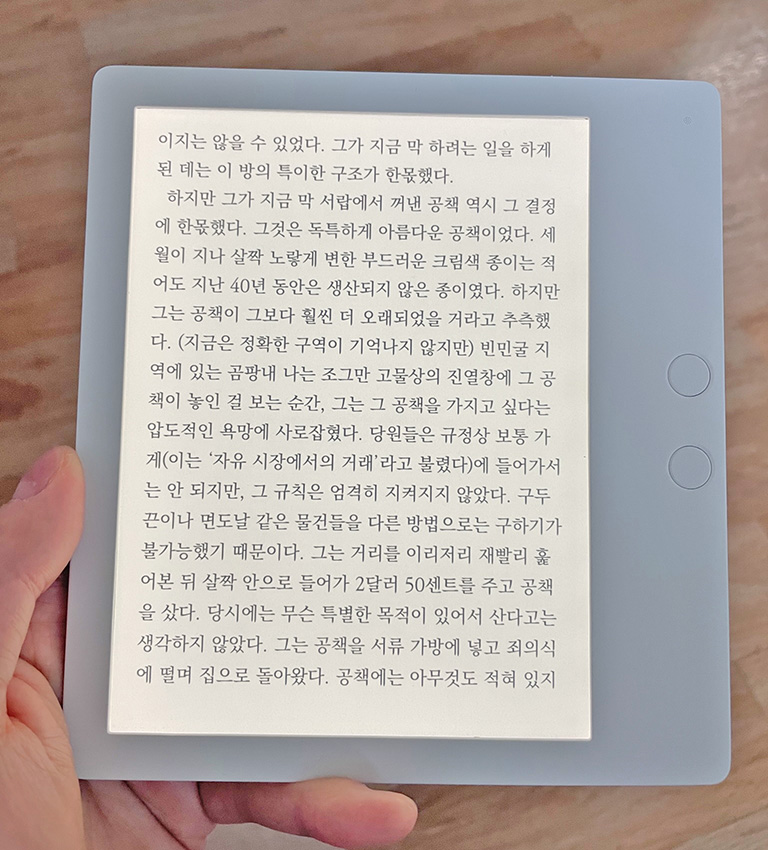 이지는 않을 수 있었다. 그가 지금 막 하려는 일을 하게
된 데는 이 방의 특이한 구조가 한몫했다.
하지만 그가 지금 막 서랍에서 꺼낸 공책 역시 그 결정
에 한몫했다. 그것은 독특하게 아름다운 공책이었다. 세
월이 지나 살짝 노랗게 변한 부드러운 크림색 종이는 적
어도 지난 40년 동안은 생산되지 않은 종이였다. 하지만
그는 공책이 그보다 훨씬 더 오래되었을 거라고 추측했
다. (지금은 정확한 구역이 기억나지 않지만) 빈민굴 지
역에 있는 곰팡내 나는 조그만 고물상의 진열창에 그 공
책이 놓인 걸 보는 순간, 그는 그 공책을 가지고 싶다는
압도적인 욕망에 사로잡혔다. 당원들은 규정상 보통 가
게(이는 ‘자유 시장에서의 거래’라고 불렸다)에 들어가서
는 안 되지만, 그 규칙은 엄격히 지켜지지 않았다. 구두
끈이나 면도날 같은 물건들을 다른 방법으로는 구하기가
불가능했기 때문이다. 그는 거리를 이리저리 재빨리 훑
어본 뒤 살짝 안으로 들어가 2달러 50센트를 주고 공책
을 샀다. 당시에는 무슨 특별한 목적이 있어서 산다고는
생각하지 않았다. 그는 공책을 서류 가방에 넣고 죄의식
에 떨며 집으로 돌아왔다. 공책에는 아무것도 적혀 있지